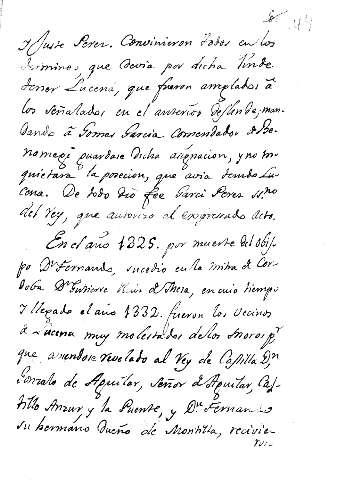 y Juste Perez. Convinieron todos en los
terminos, que devia por dicha linde
tener Lucena, que fueron amplados â
los señalados en el anterior deslinde, man-
dando â Gomes Garcia Comendador de Be-
namegi guardase dicha asignacion, y no in-
quietara la posecion, que avia tenido Lu-
cena. De todo dio fee Garci Perez ss.no
del Rey, que autorizo el expresado Acto.
En el año 1325. por muerte del Obis-
po Dn Fernando, sucedio en la mitra de Cor-
doba Dn Gutierre Ruis de Mesa, en cuio tiempo
y llegado el año 1332. fueron los vecinos
de Lucena muy molestados de los Moros pr
que aviendose revelado al Rey de Castilla Dn
Gonzalo de Aguilar, Señor de Aguilar, Cas-
tillo Anzur, y la Puente, y Dn Fernando
su hermano Dueño de Montilla, recivie-
ron